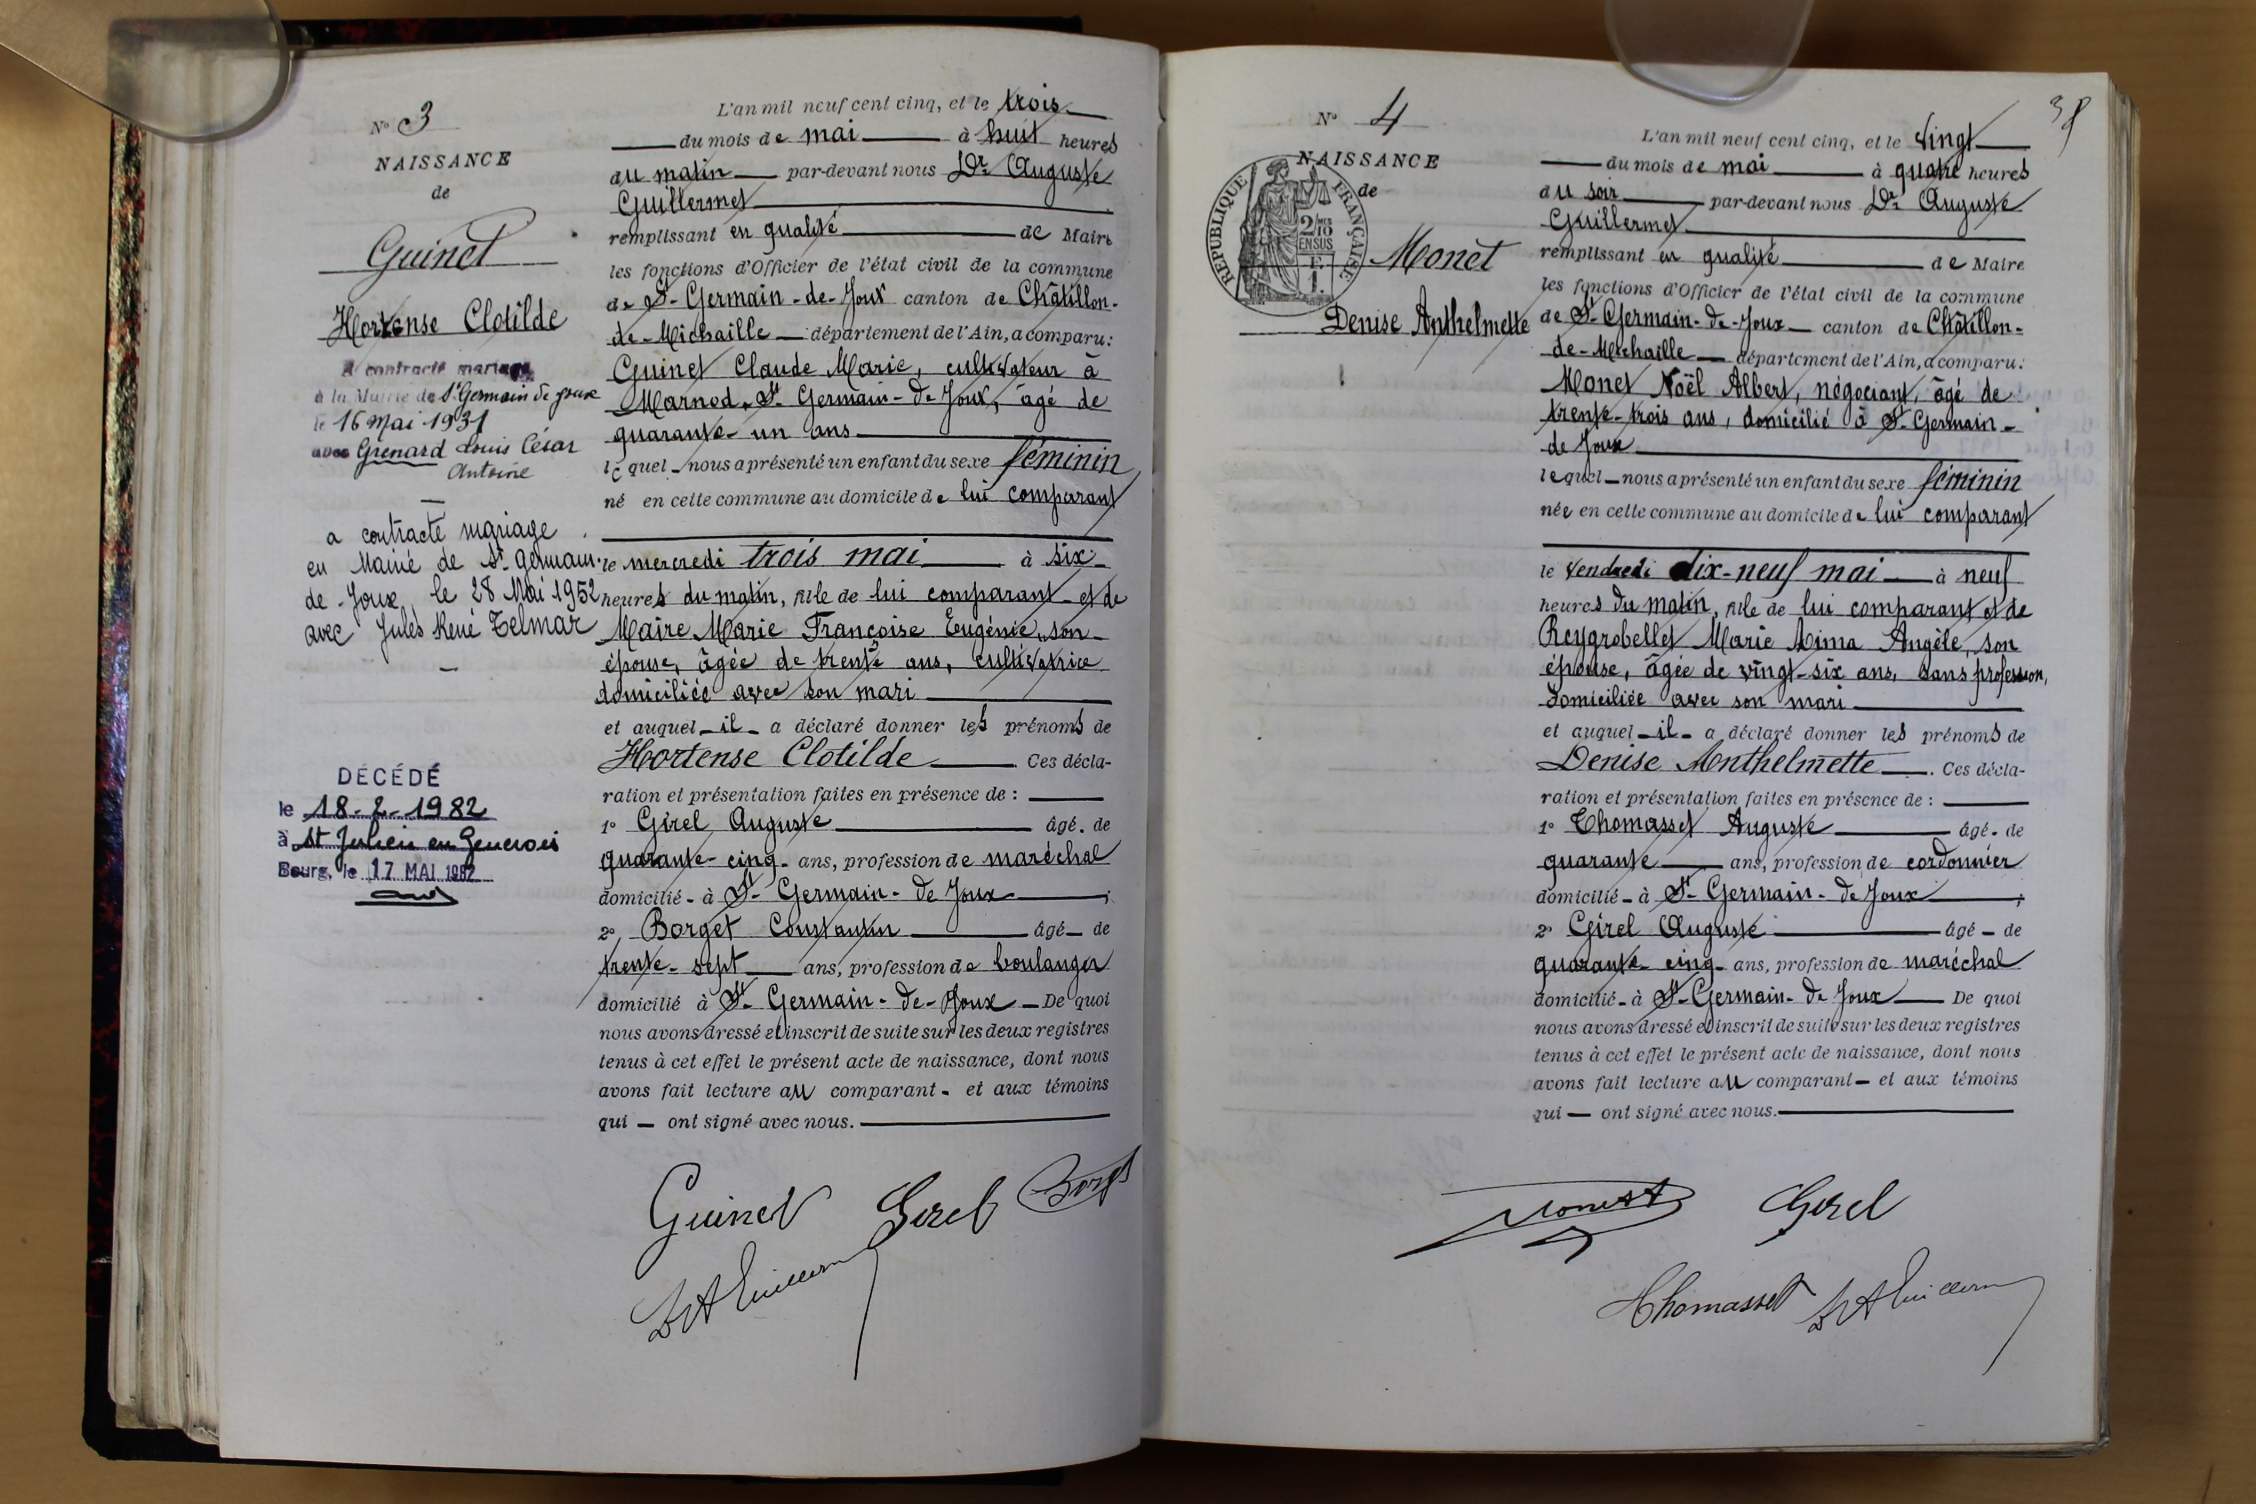 N° 3
NAISSANCE
de
Guinet
Hortense Clotilde
A contracté mariage
à la Mairie de St Germain de Joux
le 16 Mai 1931
avec Grenard Louis César
Antoine
a contracté mariage
en Mairie de St. Germain-
de-Joux le 28 Mai 1952
avec Jules René Telmar
DÉCÉDÉ
le 18-2-1982
à St Julien en Genevois
Bourg, le 17 MAI 1982
L'an mil neuf cent cinq, et le trois
du mois de mai à huit heures
du matin par-devant nous Dr Auguste
Guillermet
remplissant en qualité de Maire
les fonctions d'Officier de l'état civil de la commune
de St-Germain-de-Joux canton de Châtillon-
de-Michaille département de l'Ain, a comparu:
Guinet Claude Marie, cultivateur à
Marnod, St Germain-de Joux, âgé de
quarante-un ans
lequel nous a présenté un enfant du sexe féminin
né en cette commune au domicile de lui comparant
le mercredi trois mai à six
heures du matin, fille de lui comparant et de
Maire Marie Françoise Eugénie, son
épouse, âgée de trente ans, cultivatrice
domiciliée avec son mari
et auquel il a déclaré donner les prénoms de
Hortense Clotilde Ces décla-
ration et présentation faites en présence de :
1° Girel Auguste âgé de
quarante-cinq ans, profession de maréchal
domicilié à St Germain-de Joux ;
2° Borget Constantin âgé de
trente-sept ans, profession de boulanger
domicilié à St Germain-de-Joux De quoi
nous avons dressé et inscrit de suite sur les deux registres
tenus à cet effet le présent acte de naissance, dont nous
avons fait lecture au comparant et aux témoins
qui ont signé avec nous.
Guinet Girel Borget
Dr A Guillermet
38
N° 4
NAISSANCE
de
RÉPUBLIQUE FRANÇAISE
2/10
EN SUS
F.
1.
Monet
Denise Anthelmette
L'an mil neuf cent cinq, et le vingt
du mois de mai à quatre heures
du soir par-devant nous Dr Auguste
Guillermet
remplissant en qualité de Maire
les fonctions d'Officier de l'état civil de la commune
de St-Germain-de-Joux canton de Châtillon-
de-Michaille département de l'Ain, a comparu:
Monet Noël Albert, négociant, âgé de
trente-trois ans, domicilié à St Germain-
de Joux
lequel nous a présenté un enfant du sexe féminin
née en cette commune au domicile de lui comparant
le vendredi dix-neuf mai à neuf
heures du matin, fille de lui comparant et de
Reygrobellet Marie Lima Angèle, son
épouse, âgée de vingt-six ans, sans profession,
domiciliée avec son mari
et auquel il a déclaré donner les prénoms de
Denise Anthelmette. Ces décla-
ration et présentation faites en présence de :
1° Thomasset Auguste âgé de
quarante ans, profession de cordonnier
domicilié à St Germain-de Joux ;
2° Girel Auguste âgé de
quarante-cinq ans, profession de maréchal
domicilié à St-Germain-de Joux De quoi
nous avons dressé et inscrit de suite sur les deux registres
tenus à cet effet le présent acte de naissance, dont nous
avons fait lecture au comparant et aux témoins
qui ont signé avec nous.
Monet A Girel
Thomasset Dr A Guillermet